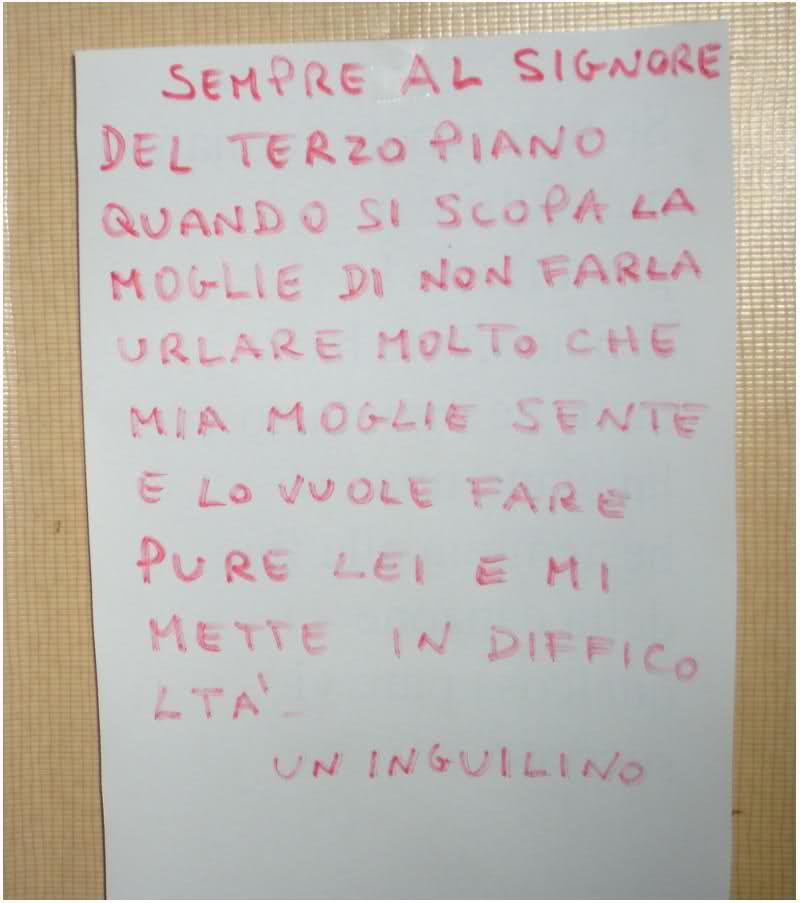 SEMPRE AL SIGNORE
DEL TERZO PIANO
QUANDO SI SCOPA LA
MOGLIE DI NON FARLA
URLARE MOLTO CHE
MIA MOGLIE SENTE
E LO VUOLE FARE
PURE LEI E MI
METTE IN DIFFICO
LTA'-
UN INGUILINO